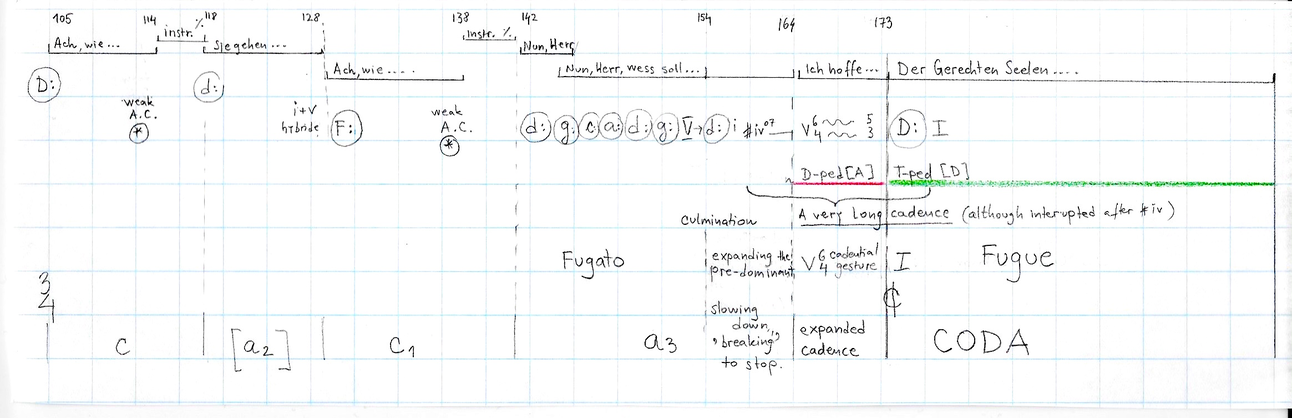 105 114 118 128 138 142 154 164 173
instr. ٪ instr. ٪
Ach, wie... Sie gehen... Nun, Herr
Ach, wie.... Nun, Herr, wess soll... Ich hoffe... Der Gerechten Seelen....
D: d:
weak A.C. * i+V hybride F: weak A.C. * d: g: c: a: d: g: V→d: i #iv°7 V 6 5 4 3 D: I
D-ped[A] T-ped [D]
culmination A very long cadence (although interrupted after #iv)
Fugato expanding the pre-dominant V 6 4 cadential gesture I Fugue
3 4 ¢
slowing down, "breaking" to stop.
c [a2] c1 a3 expanded cadence CODA